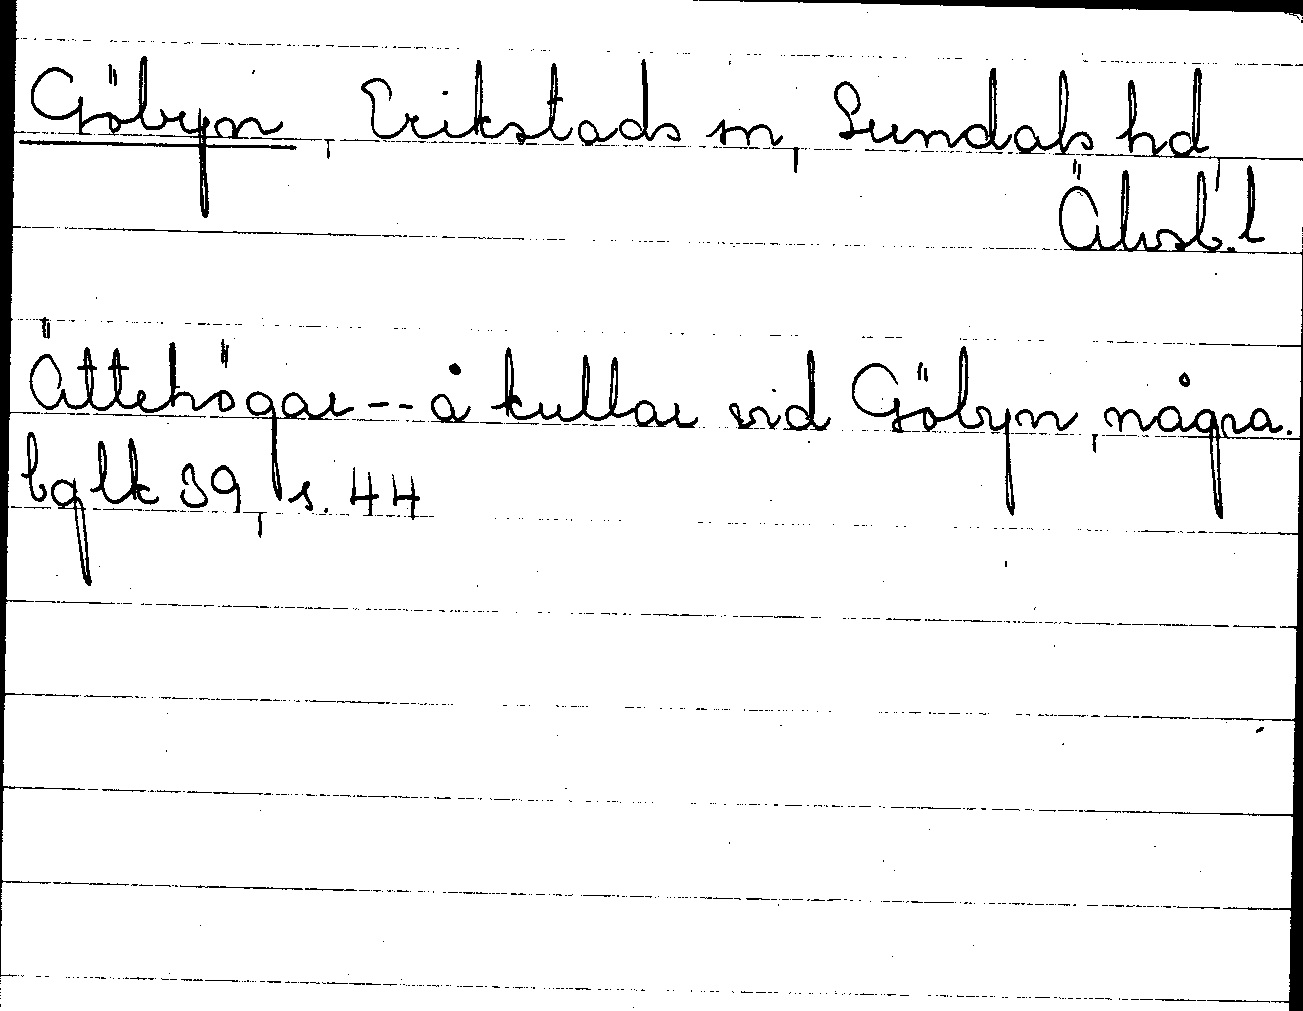 Göbyn, Erikstads sn, Sundals hd,
Älvsb. l
Ättehögar -- å kullar vid Göbyn, några.
bglk 39, s. 44